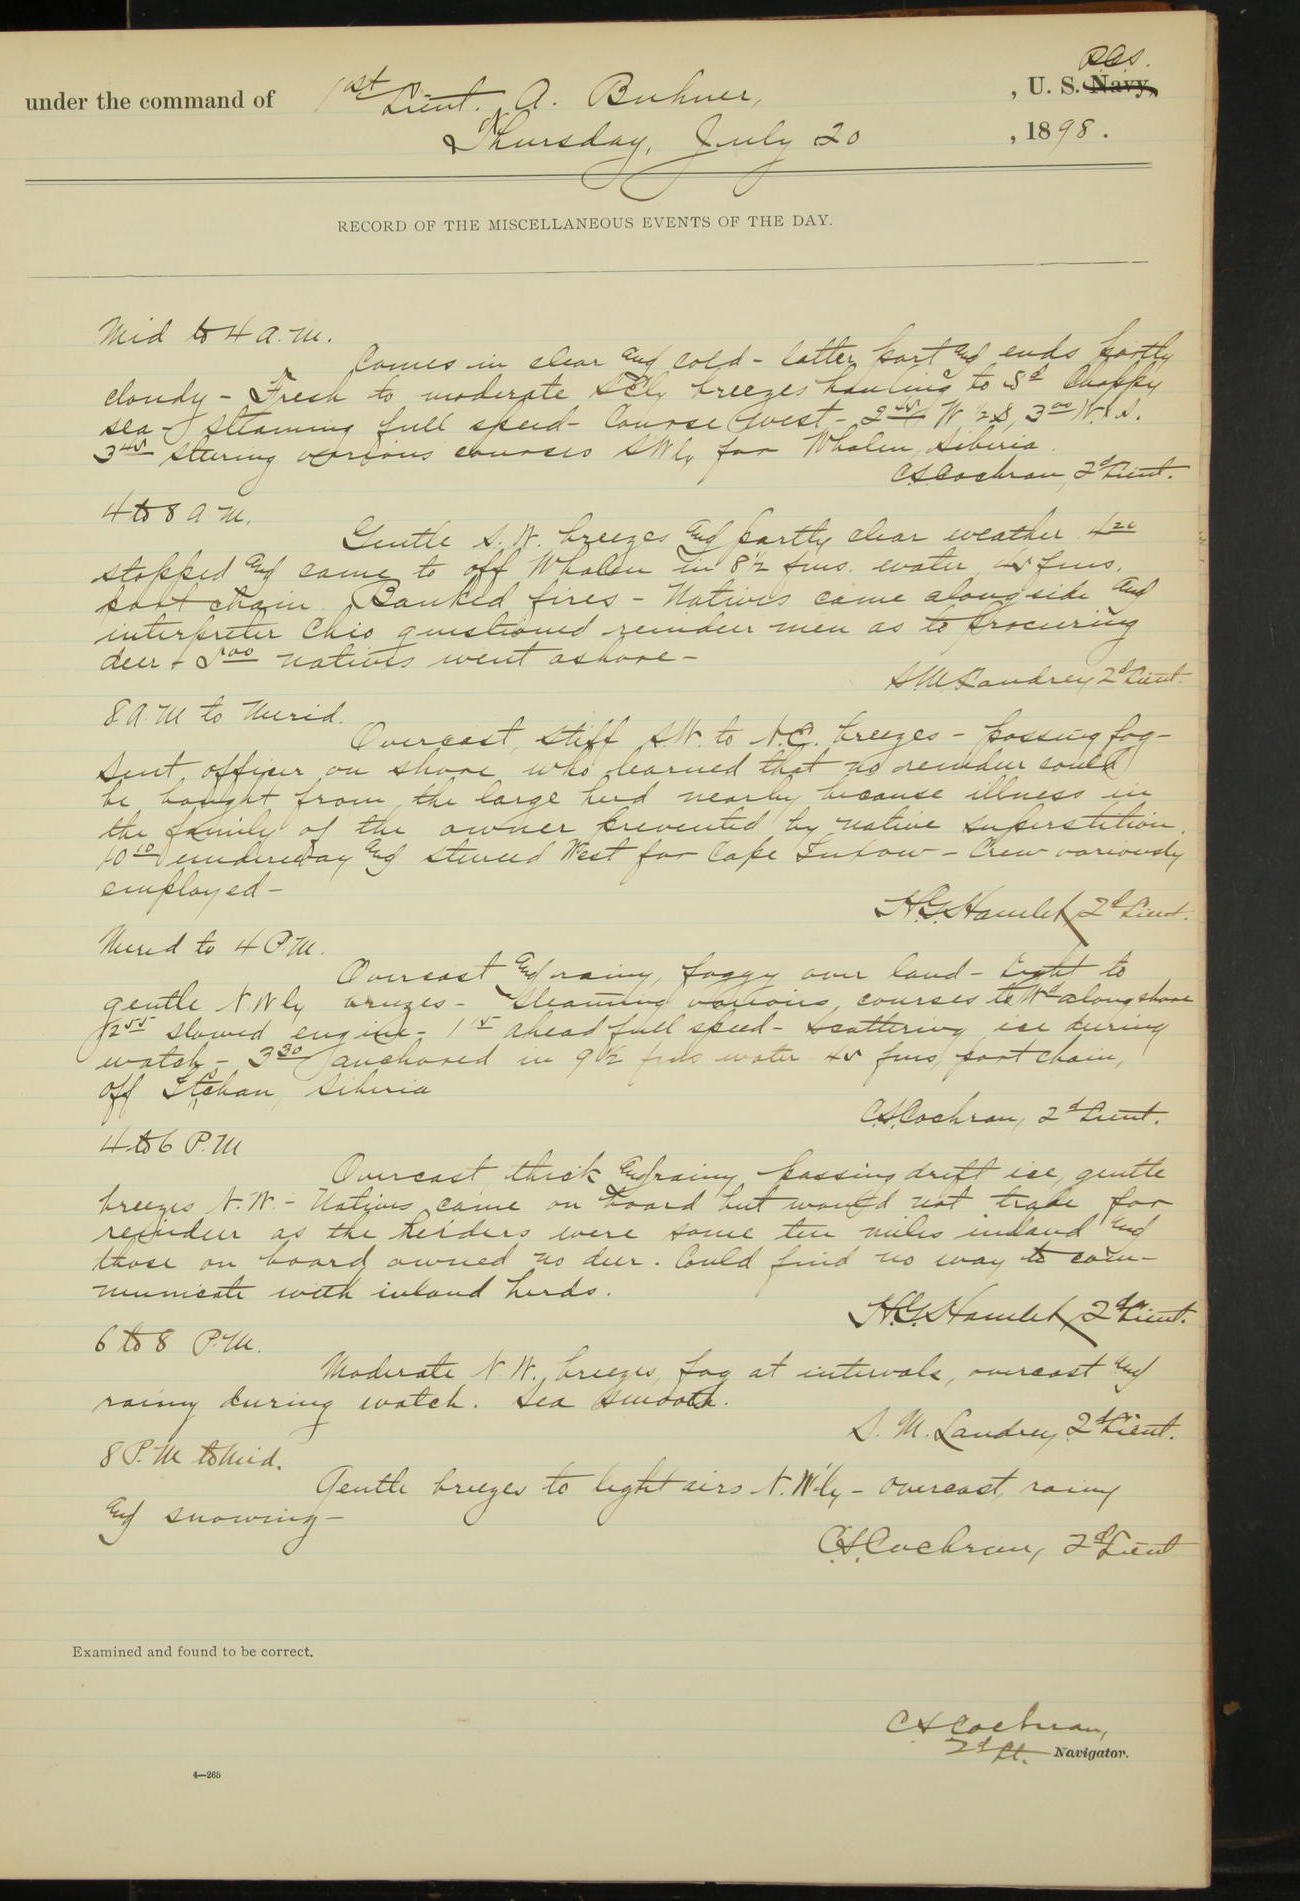 under the command of 1st Lieut. A. Buhner, , U. S. Navy, RCS.
Thursday, July 20 , 1898.
RECORD OF THE MISCELLANEOUS EVENTS OF THE DAY.
Mid to 4 A.M.
Comes in clear and cold - latter part and ends partly
cloudy - Fresh to moderate SEly breezes hauling to Sd Choppy
sea - steaming full speed - Course West - W ½ S, 3 00 W. S.
3 45 steering various courses SWly for Whalen, Siberia.
C.S. Cochran, 2d Lieut.
4 to 8 A M.
Gentle S. W. breezes and partly clear weather 4 20
stopped and came to off Whalen in 8½ fms. water, 45 fms.
port chain. Banked fires - Natives came alongside and
interpreter Chio questioned reindeer men as to procuring
deer - 5 00 natives went ashore -
S.M. Landrey 2d Lieut.
8 A.M to Merid.
Overcast, stiff SW. to N.E. breezes - passing fog -
Sent officer on shore who learned that no reindeer could
be bought from the large herd nearby because illness in
the family of the owner prevented by native superstition.
10 10 underway and steered West for Cape - Crew variously
employed -
H.G. Hamlet, 2d Lieut.
Merid to 4 P.M.
Overcast and rainy, foggy over land - Light to
gentle N.Wly breezes - Steaming various courses to Wd along shore
12 55 slowed engine - 1 15 ahead full speed - Scattering ice during
watch - 3 30 anchored in 9 ½ fms water 45 fms port chain,
off Itchan, Siberia
C.S. Cochran, 2d Lieut.
4 to 6 P.M
Overcast, thick and rainy passing drift ice, gentle
breezes N.W. - Natives came on board but would not trade for
reindeer as the herders were some ten miles inland and
those on board owned no deer. Could find no way to com-
municate with inland herds.
H.G. Hamlet, 2d Lieut.
6 to 8 P.M.
Moderate N.W. breezes, fog at intervals, overcast and
rainy during watch. Sea smooth.
S. M. Landrey 2d Lieut.
8 P.M to Mid.
Gentle breezes to light airs N.W'ly - overcast, rainy
and snowing -
C.S. Cochran, 2d Lieut
Examined and found to be correct.
C S Cochran,
2d Lt. Navigator.
4—265